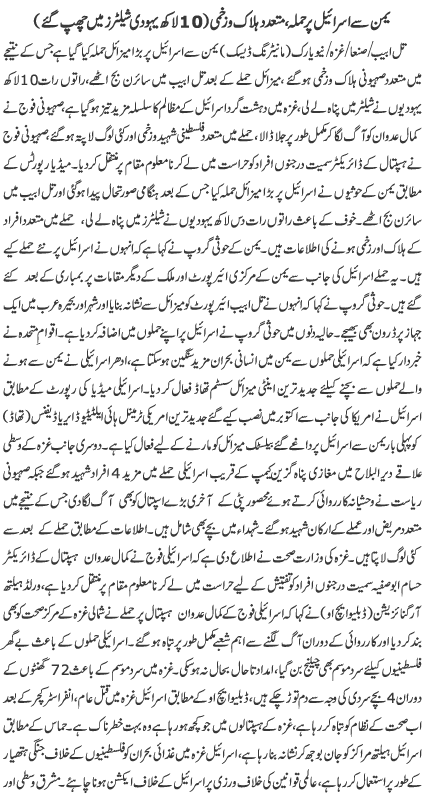 یمن سے اسرائیل پر حملہ، متعدد ہلاک و زخمی (10 لاکھ یہودی شیلٹرز میں چھپ گئے)
تل ابیب/صنعا/غزہ/نیویارک (مانیٹرنگ ڈیسک) یمن سے اسرائیل پر بڑا میزائل حملہ کیا گیا ہے جس کے نتیجے
میں متعدد صہیونی ہلاک و زخمی ہو گئے، میزائل حملے کے بعد تل ابیب میں سائرن بج اٹھے، راتوں رات 10 لاکھ
یہودیوں نے شیلٹر میں پناہ لے لی، غزہ میں دہشت گرد اسرائیل کے مظالم کا سلسلہ مزید تیز ہو گیا ہے، صہیونی فوج نے
کمال عدوان کو آگ لگا کر مکمل طور پر جلا ڈالا، حملے میں متعدد فلسطینی شہید و زخمی اور کئی لوگ لاپتہ ہو گئے، صہیونی فوج
نے ہسپتال کے ڈائریکٹر سمیت درجنوں افراد کو حراست میں لے کر نامعلوم مقام پر منتقل کر دیا۔ میڈیا رپورٹس کے
مطابق یمن کے حوثیوں نے اسرائیل پر بڑا میزائل حملہ کیا جس کے بعد ہنگامی صورتحال پیدا ہو گئی اور تل ابیب میں
سائرن بج اٹھے۔ خوف کے باعث راتوں رات دس لاکھ یہودیوں نے شیلٹرز میں پناہ لے لی، حملے میں متعدد افراد
کے ہلاک اور زخمی ہونے کی اطلاعات ہیں۔ یمن کے حوثی گروپ نے کہا ہے کہ انہوں نے اسرائیل پر نئے حملے کیے
ہیں۔ یہ حملے اسرائیل کی جانب سے یمن کے مرکزی ائیرپورٹ اور ملک کے دیگر مقامات پر بمباری کے بعد کئے
گئے ہیں۔ حوثی گروپ نے کہا کہ انہوں نے تل ابیب ائیرپورٹ کو میزائل سے نشانہ بنایا اور شہر اور بحیرہ عرب میں ایک
جہاز پر ڈرون بھی بھیجے۔ حالیہ دنوں میں حوثی گروپ نے اسرائیل پر اپنے حملوں میں اضافہ کر دیا ہے۔ اقوام متحدہ نے
خبردار کیا ہے کہ اسرائیلی حملوں سے یمن میں انسانی بحران مزید سنگین ہو سکتا ہے، ادھر اسرائیلی نے یمن سے ہونے
والے حملوں سے بچنے کیلئے جدید ترین اینٹی میزائل سسٹم تھاڈ کو فعال کر دیا۔ اسرائیلی میڈیا کی رپورٹ کے مطابق
اسرائیل نے امریکا کی جانب سے اکتوبر میں نصب کیے گئے جدید ترین امریکی ٹرمینل ہائی ایلٹیٹیوڈ ایریا ڈیفنس (تھاڈ)
کو پہلی بار یمن سے اسرائیل پر داغے گئے بیلسٹک میزائل کو مارنے کے لیے فعال کیا ہے۔ دوسری جانب غزہ کے وسطی
علاقے دیر البلاح میں مغازی پناہ گزین کیمپ کے قریب اسرائیلی حملے میں مزید 4 افراد شہید ہو گئے جبکہ صہیونی
ریاست نے وحشیانہ کارروائی کرتے ہوئے محصور پٹی کے آخری بڑے اسپتال کو بھی آگ لگا دی جس کے نتیجے میں
متعدد مریض اور عملے کے ارکان شہید ہو گئے۔ شہداء میں بچے بھی شامل ہیں۔ اطلاعات کے مطابق حملے کے بعد سے
کئی لوگ لاپتا ہیں۔ غزہ کی وزارت صحت نے اطلاع دی ہے کہ اسرائیلی فوج نے کمال عدوان ہسپتال کے ڈائریکٹر
حسام ابوصفیہ سمیت درجنوں افراد کو تفتیش کے لیے حراست میں لے کر نامعلوم مقام پر منتقل کر دیا ہے، ورلڈ ہیلتھ
آرگنائزیشن (ڈبلیو ایچ او) نے کہا کہ اسرائیلی فوج کے کمال عدوان ہسپتال پر حملے نے شمالی غزہ کے مرکز صحت کو بھی
بند کر دیا اور کارروائی کے دوران آگ لگنے سے اہم شعبے مکمل طور پر تباہ ہو گئے ہیں۔ اسرائیلی حملوں کے باعث بے گھر
فلسطینیوں کیلئے سرد موسم بھی چیلنج بن گیا، امداد تاحال بحال نہ ہو سکی۔ غزہ میں سرد موسم کے باعث 72 گھنٹوں کے
دوران 4 بچے سردی کی وجہ سے دم توڑ چکے ہیں، ڈبلیو ایچ او کے مطابق اسرائیل غزہ میں قتل عام، انفراسٹرکچر کے بعد
اب صحت کے نظام کو تباہ کر رہا ہے، غزہ کے ہسپتالوں میں جو کچھ ہو رہا ہے وہ بہت خطرناک ہے۔ حماس کے مطابق
اسرائیل ہیلتھ مراکز کو جان بوجھ کر نشانہ بنا رہا ہے، اسرائیل غزہ میں غذائی بحران کو فلسطینیوں کے خلاف جنگی ہتھیار
کے طور پر استعمال کر رہا ہے، عالمی قوانین کی خلاف ورزی پر اسرائیل کے خلاف ایکشن ہونا چاہئے۔ مشرق وسطی اور